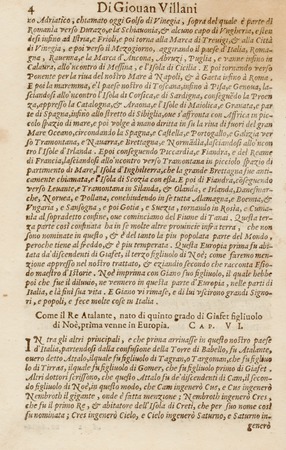 4 Di Giouan Villani
no Adriatico, chiamato oggi Golfo di Vinegia, sopra del quale è parte di
Romania verso Durazzo, e la Schiauonia, & alcuno capo di Vngheria, e sten
desi infino ad Istria, e Frioli, e poi torna alla Marca di Treuigi, & alla Città
di Vinegia, e poi verso il Mezzogiorno, aggirando il paese d'Italia, Roma-
gna, Rauenna, e la Marca d'Ancona, Abruzi, Puglia, e vanne infino in
Calaura, allo'ncontro di Messina, e l'Isola di Cicilia. E poi tornando verso
Ponente per la riua del nostro Mare à Napoli, & à Gaeta infino à Roma.
E poi la maremma, e'l paese nostro di Toscana, infino à Pisa, e Genoua, la-
sciandosi allo'ncontro l'Isola di Corsica, e di Sardigna, conseguendo la Proen
za, appresso la Catalogna, & Araona, e l'Isole di Maiolica, e Granata, e par
te di Spagna, infino allo stretto di Sibiglia, oue s'affronta con Affrica in pic-
ciolo spazio di mare, e poi volge à mano diritta in su la riua di fuori del gran
Mare Oceano, circondando la Spagna, & Castella, e Portogallo, e Galizia ver
so Tramontana, e Nauarra, e Brettagna, e Normãdia, lasciandosi allo incon
tro l'Isola d'Irlanda. E poi conseguendo Piccardia, Fiandra, e del Reame
di Francia, lasciandosi allo'ncontro verso Tramontana in picciolo spazio di
partimento di Mare, l'Isola d'Inghilterra, che la grande Brettagna fue anti-
camente chiamata, e l'Isola di Scozia con essa. E poi di Fiandra, seguendo
verso Leuante, e Tramontana in Silanda, & Olanda, e Irlanda, Danesmar-
che, Noruea, e Pollana, conchiudendo in se tutta Alamagna, e Boemia, &
Vngaria, e Sassogna, e poi Gozia, e Suezia, tornando in Rosia, e Cuma-
nia al sopradetto confine, oue cominciamo del Fiume di Tanai. Questa ter
za parte così confinata ha in se molte altre prouincie infra terra, che non
sono nominate in questo, & è del tanto la piu popolata parte del Mondo,
peroche tiene al freddo, & è piu temperata. Questa Europia prima fu abi-
tata da discendenti di Giafet, il terzo figliuolo di Noè; come faremo men-
zione appresso nel nostro trattato, & eziandio secondo che racconta Esco-
dio maestro d'Istorie. Noè inprima con Giano suo figliuolo, il quale hebbe
poi che fue il diluuio, ne vennero in questa parte d'Europia, nelle parti di
Italia, e là finì la sua vita. E Giano vi rimase, e di lui vscirono grandi Signo-
ri, e popoli, e fece molte cose in Italia.
Come il Re Atalante, nato di quinto grado di Giafet figliuolo
di Noè, prima venne in Europia. CAP. VI.
IN tra gli altri principali, e che prima arriuasse in questo nostro paese
d'Italia, partendosi dalla confusione della Torre di Babello, fu Atalante,
ouero detto, Atalo, il quale fu figliuolo di Tagran, o Targoman, che fu figliuo
lo di Tirras, il quale fu figliuolo di Gomer, che fu figliuolo primo di Giafet.
Altri dottori scrissono, che questo Atalo fu de' discendenti di Cam, il secon-
do figliuolo di Noè, in questo modo, che Cam ingenerò Cus, e Cus ingenerò
Nembroth il gigante, onde è fatta menzione; Nembroth ingenerò Cres,
che fu il primo Re, & abitatore dell'Isola di Creti, che per suo nome così
fu nominata; Cres ingenerò Cielo, e Cielo ingenerò Saturno, e Saturno in-
generò